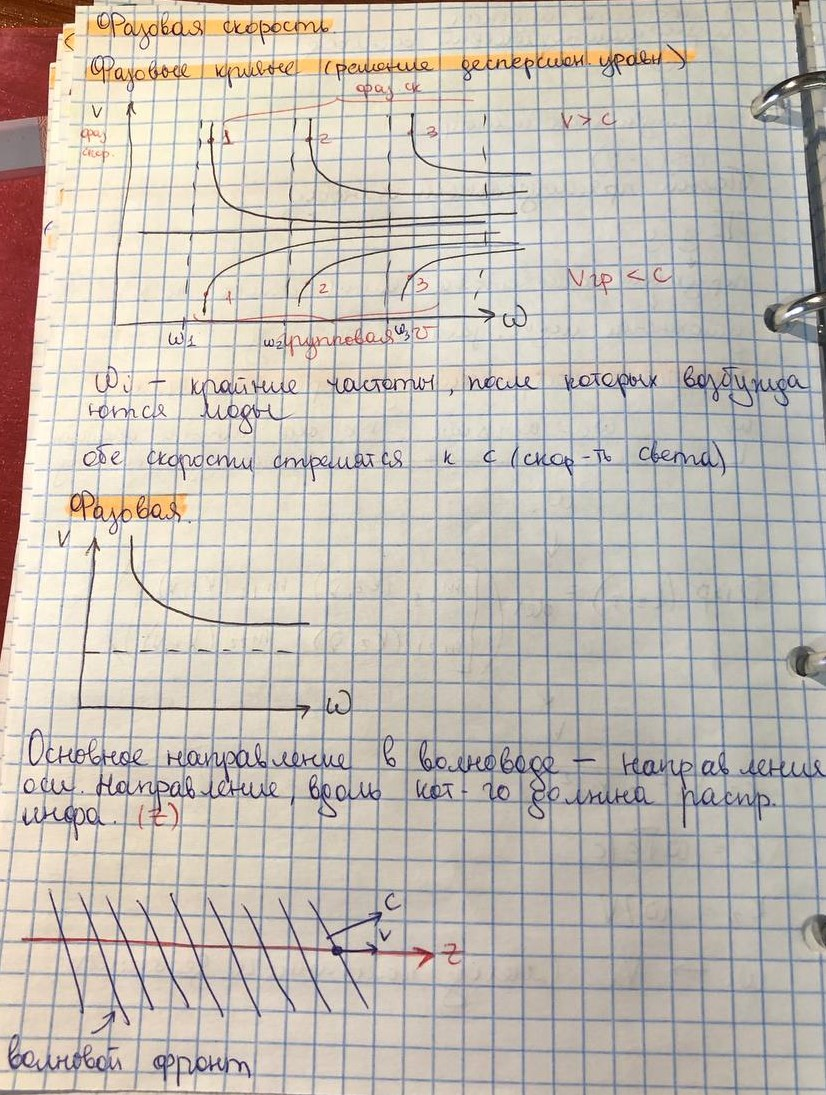 Фазовая скорость.
Фазовые кривые (решение десперсион. уравн)
фаз ск
V
фаз
скор.
1
2
3
V > c
1
2
3
Vгр < c
ω1
ω2
групповая
ω3
v
ω
ωi – крайние частоты, после которых возбужда
ются моды
обе скорости стремятся к с (скор-ть света)
Фазовая.
V
ω
Основное направление в волноводе – направления
оси. Направление, вдоль кот-го должна распр.
инфа. (z)
c
v
z
волновой фронт